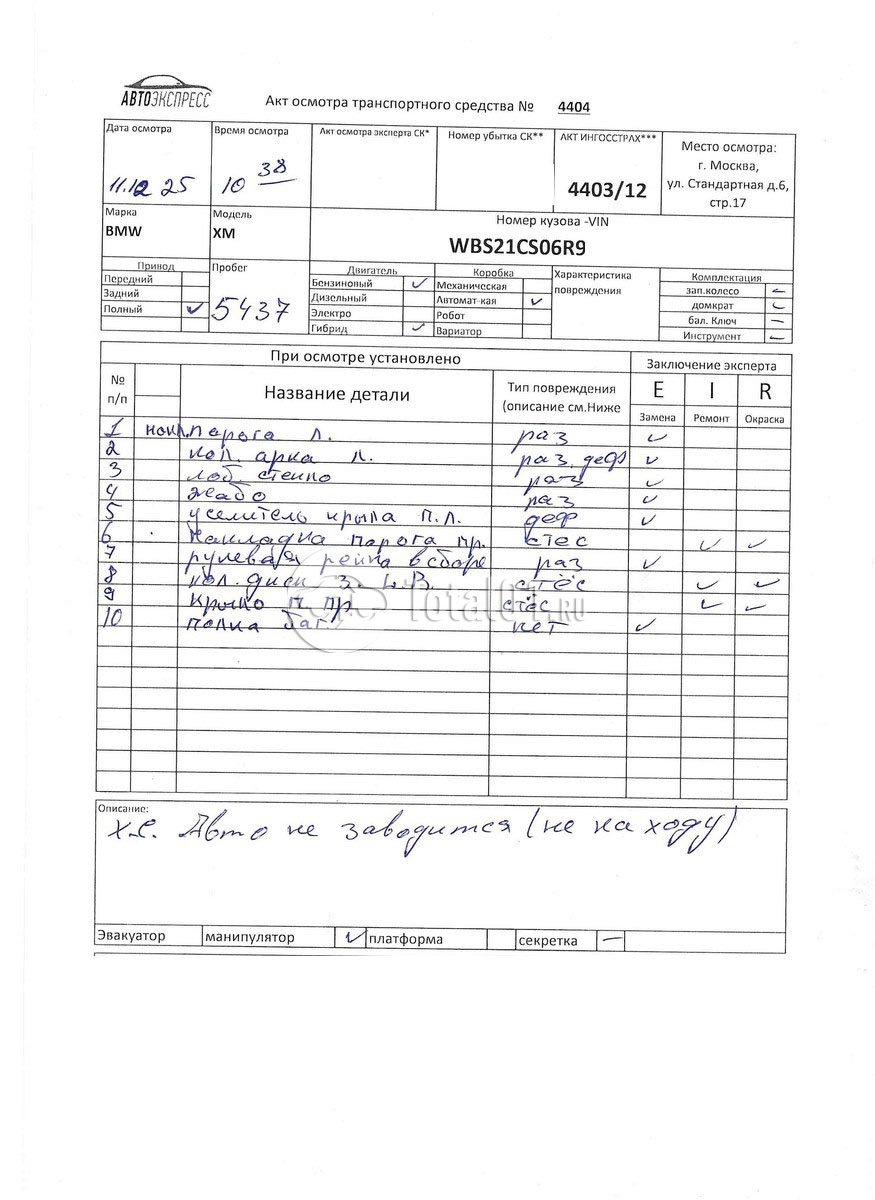 АВТОЭКСПРЕСС
Акт осмотра транспортного средства № 4404
Дата осмотра
11.12 25
Время осмотра
10 38
Акт осмотра эксперта СК*
Номер убытка СК**
АКТ ИНГОССТРАХ***
4403/12
Место осмотра:
г. Москва,
ул. Стандартная д.6,
стр.17
Марка
BMW
Модель
XM
Номер кузова -VIN
WBS21CS06R9
Привод
Передний
Задний
Полный ✓
Пробег
5437
Двигатель
Бензиновый ✓
Дизельный
Электро
Гибрид ✓
Коробка
Механическая
Автомат-кая ✓
Робот
Вариатор
Характеристика
повреждения
Комплектация
зап.колесо –
домкрат
бал. Ключ –
Инструмент –
При осмотре установлено
Заключение эксперта
№
п/п
Название детали
Тип повреждения
(описание см.Ниже
E I R
Замена Ремонт Окраска
1 накл. парога л. раз ✓
2 кол. арка л. раз. деф ✓
3 лоб. стекло раз ✓
4 жабо раз ✓
5 уселитель крыла п.л. деф ✓
6 накладка парога пр. стес ✓ ✓
7 рулевая рейка в сборе раз ✓
8 кол. диск з. L.В. стёс ✓ ✓
9 крыло п. пр стёс ✓ ✓
10 полка баг. нет ✓
TotalO1.RU
Описание:
Х.З. Авто не заводится (не на ходу)
Эвакуатор манипулятор ✓ платформа секретка –